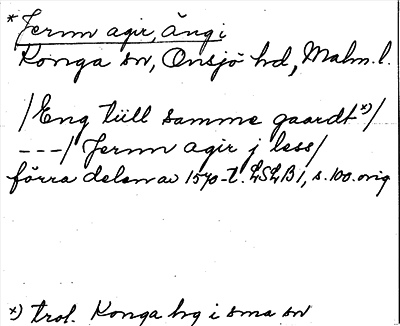 * Jernn agir, äng i
Konga sn, Onsjö hd, Malm. l.
/Eng till samme gaardt *)/
---/ Jernn agir j less/
förra delen av 1570-t. LSLB1, s. 100. orig
*) trol. Konga by i sma sn